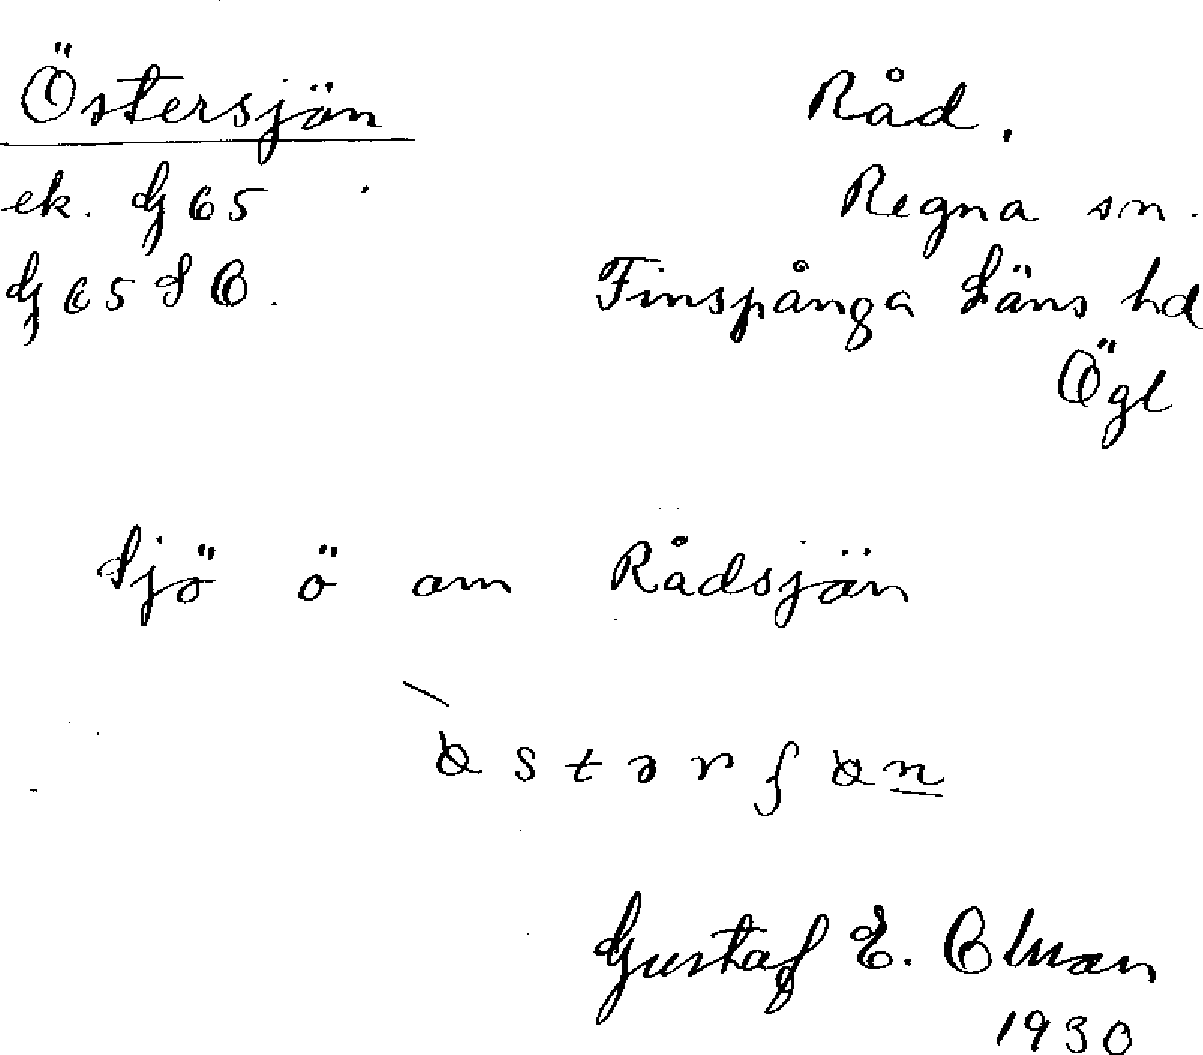 Östersjön
ek. G 65
G 65 S O.
Råd.
Regna sn.
Finspånga läns hd
Ögl
Sjö ö om Rådsjön
Gustaf E.
1930